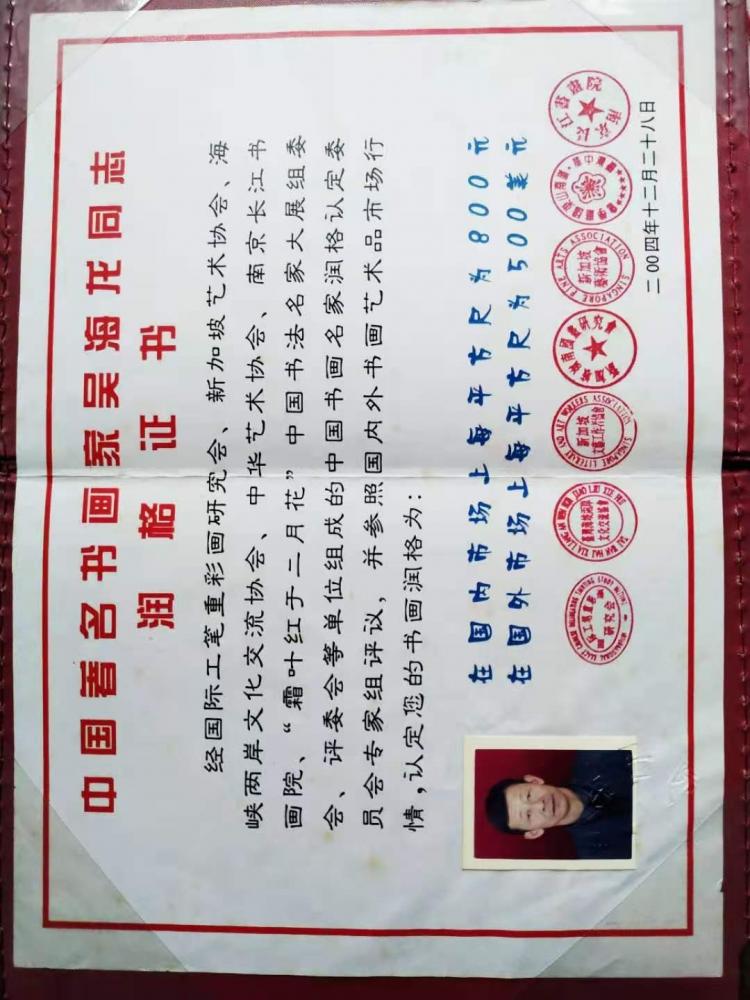 中国著名书画家吴海龙同志
润格证书
经国际工笔重彩画研究会、新加坡艺术协会、海
峡两岸文化交流协会、中华艺术协会、南京长江书
画院、“霜叶红于二月花”中国书法名家大展组委
会、评委会等单位组成的中国书画名家润格认定委
员会专家组评议，并参照国内外书画艺术品市场行
情，认定您的书画润格为：
在国内市场上每平方尺为800元
在国外市场上每平方尺为500美元
研究会
文化交流協會
SINGAPORE LITERARY AND ART WORKERS ASSOCIATION
新加坡
文藝工作者協會
新加坡嶺南國畫研究會
SINGAPORE FINE ARTS ASSOCIATION
新加坡
藝術協會
南京长江書畫院
二00四年十二月二十八日